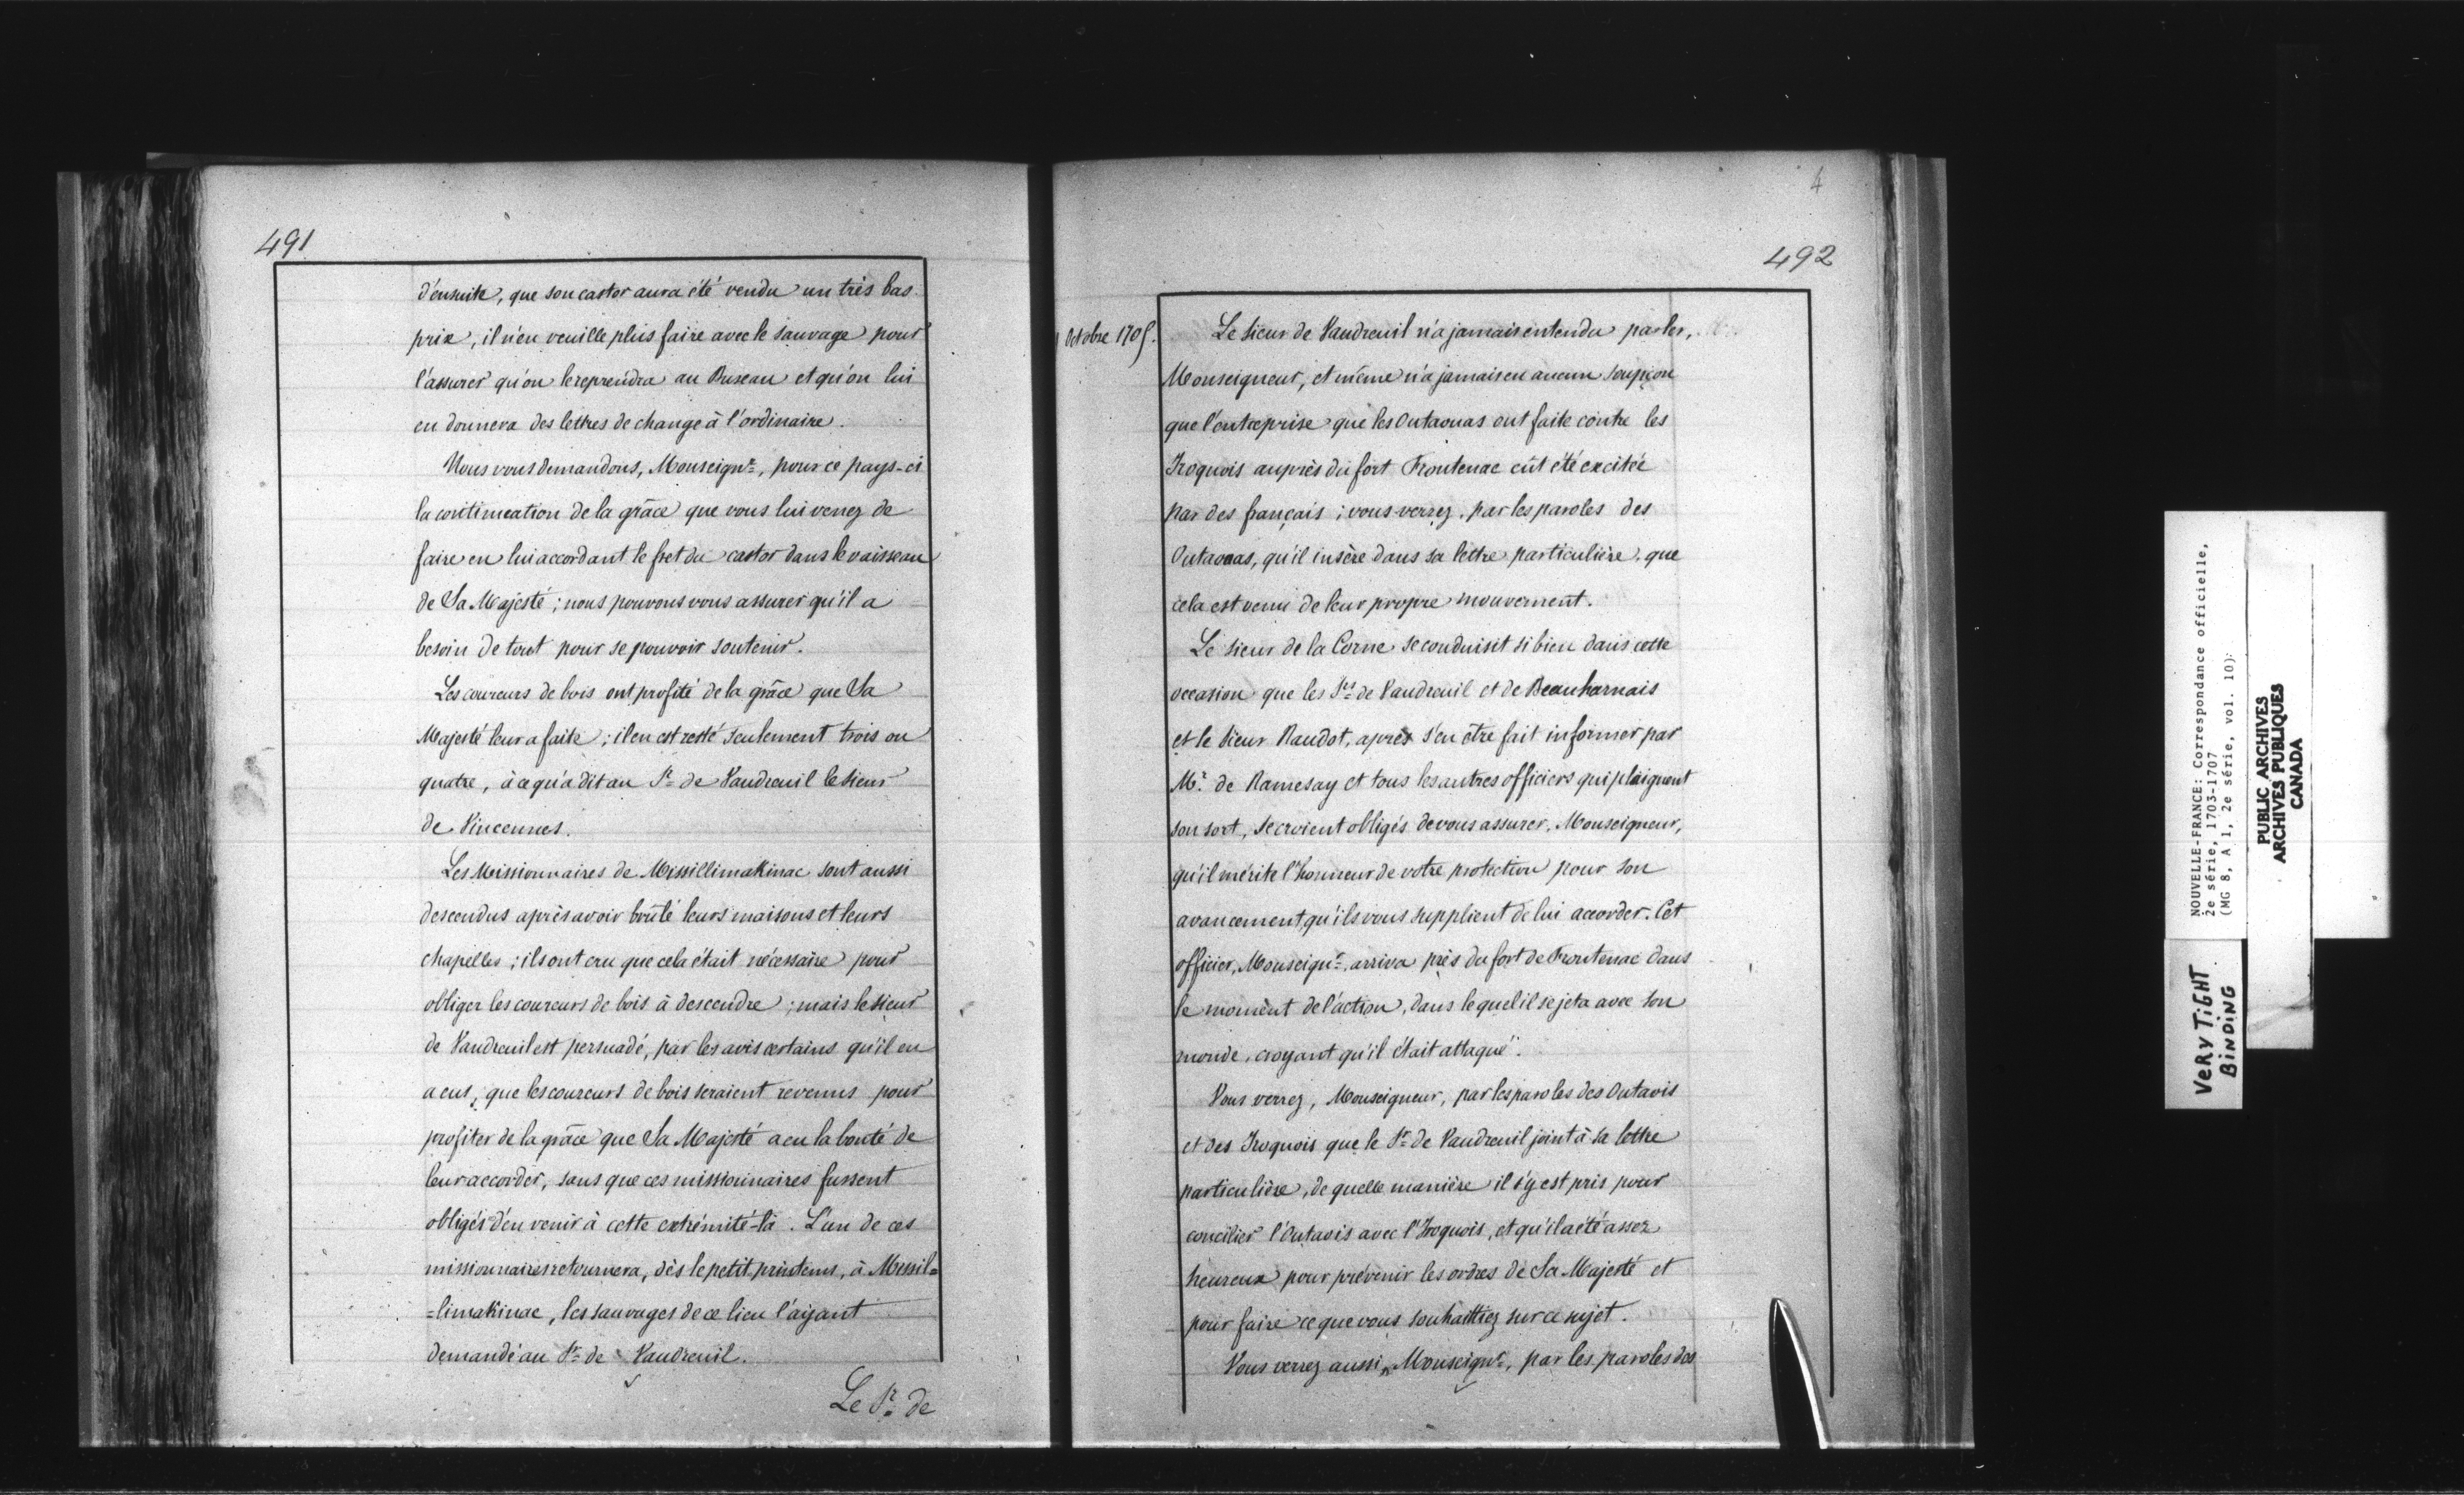 491
d'ensuite, que son castor aura été vendu un très bas
prix, il n'en veuille plus faire avec le sauvage pour
l'assurer qu'on le reprendra au Bureau et qu'on lui
en donnera des lettres de change à l'ordinaire.
Nous vous demandons, Monseignr, pour ce pays-ci
la continuation de la grâce que vous lui venez de
faire en lui accordant le fret du castor dans le vaisseau
de Sa Majesté ; nous pouvons vous assurer qu'il a
besoin de tout pour se pouvoir soutenir.
Les coureurs de bois ont profité de la grâce que Sa
Majesté leur a faite ; il en est resté seulement trois ou
quatre, à ce qu'a dit au Sr de Vaudreuil le sieur
de Vincennes.
Les Missionnaires de Missillimakinac sont aussi
descendus après avoir brûlé leurs maisons et leurs
chapelles ; ils ont cru que cela était nécessaire pour
obliger les coureurs de bois à descendre ; mais le sieur
de Vaudreuil est persuadé, par les avis certains qu'il en
a eus, que les coureurs de bois seraient revenus pour
profiter de la grâce que Sa Majesté a eu la bonté de
leur accorder, sans que ces missionnaires fussent
obligés d'en venir à cette extrémité-là. L'un de ces
missionnaires retournera, dès le petit printems, à Missil=
=limakinac, les sauvages de ce lieu l'ayant
demandé au Sr de Vaudreuil.
Le Sr de
4
492
Octobre 1705.
Le sieur de Vaudreuil n'a jamais entendu parler,
Monseigneur, et même n'a jamais eu aucun soupçon
que l'entreprise que les Outaouas ont faite contre les
Iroquois auprès du fort Frontenac eût été excitée
par des français ; vous verrez, par les paroles des
Outaouas, qu'il insère dans sa lettre particulière, que
cela est venu de leur propre mouvement.
Le sieur de la Corne se conduisit si bien dans cette
occasion que les Srs de Vaudreuil et de Beauharnais
et le sieur Raudot, après s'en être fait informer par
Mr. de Ramesay et tous les autres officiers qui plaignent
son sort, se croient obligés de vous assurer, Monseigneur,
qu'il mérite l'honneur de votre protection pour son
avancement, qu'ils vous supplient de lui accorder. Cet
officier, Monseignr, arriva près du fort de Frontenac dans
le moment de l'action, dans lequel il se jeta avec son
monde, croyant qu'il était attaqué.
Vous verrez, Monseigneur, par les paroles des Outavis
et des Iroquois que le Sr de Vaudreuil joint à sa lettre
particulière, de quelle manière il s'y est pris pour
concilier l'Outavis avec l'Iroquois, et qu'il a été assez
heureux pour prévenir les ordres de Sa Majesté et
pour faire ce que vous souhaittiez sur ce sujet.
Vous verrez aussi, Monseignr, par les paroles des
NOUVELLE-FRANCE: Correspondance officielle,
2e série, 1703-1707
(MG 8, A 1, 2e série, vol. 10):
PUBLIC ARCHIVES
ARCHIVES PUBLIQUES
CANADA
VERY TIGHT
BINDING